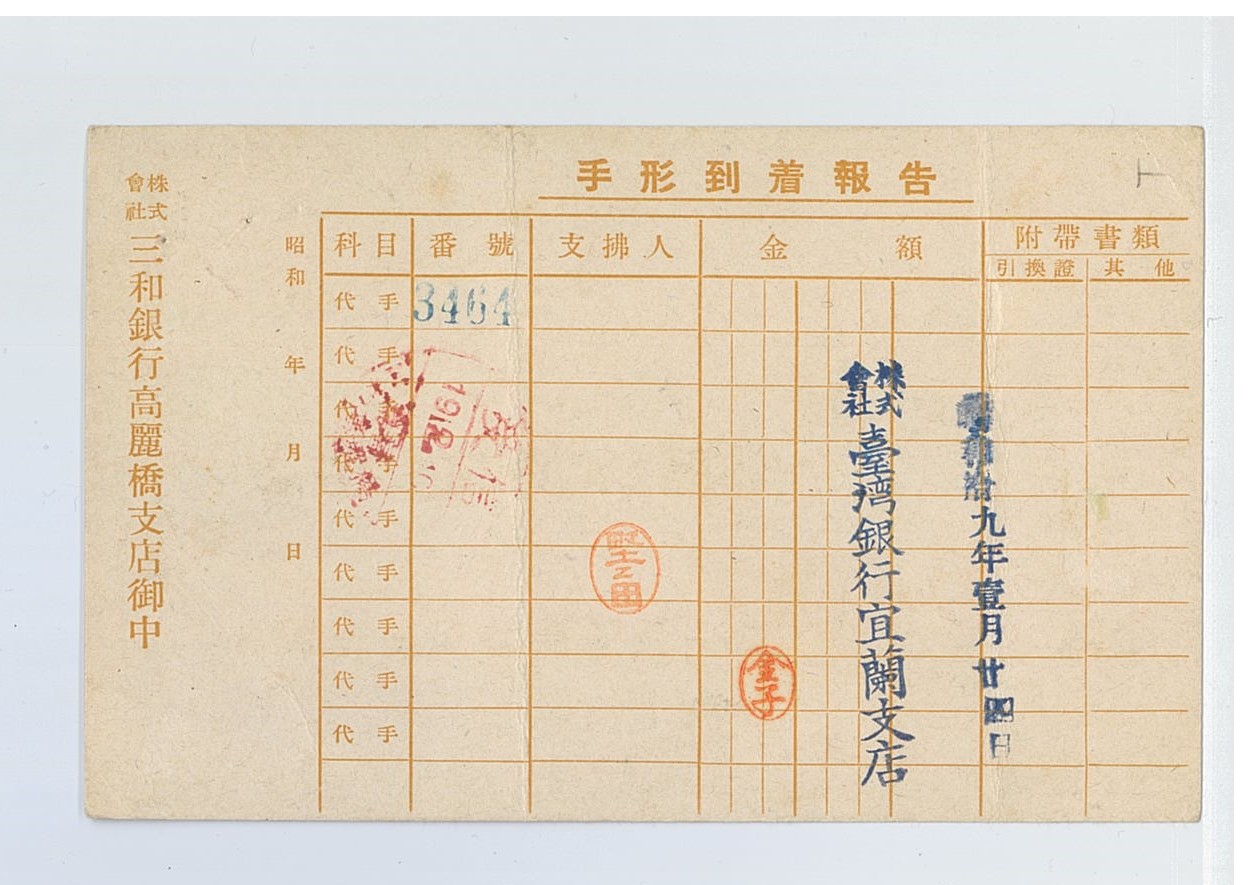 手形到着報告
科目 番號 支拂人 金額 附帶書類
引換證 其他
代手 3464
代手
代手
代手
代手
代手
代手
代手
代手
昭和 年 月 日
株式會社 三和銀行高麗橋支店御中
昭和拾九年壹月廿四日
株式會社 臺湾銀行宜蘭支店
金子